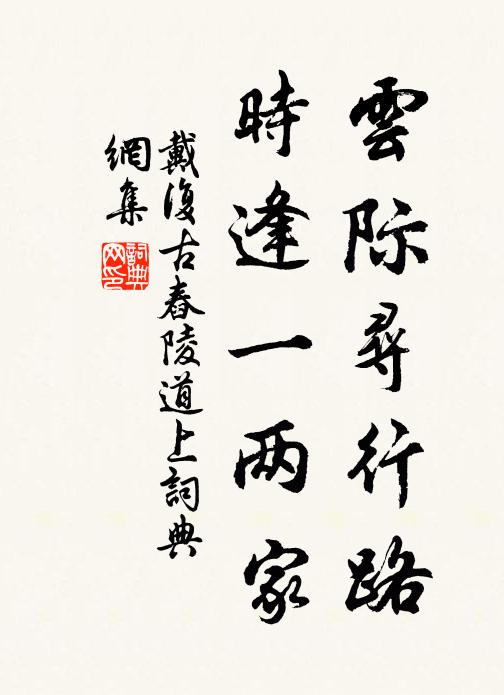 雲际尋行路
時逢一两家
戴復古舂陵道上詞典
網集
詞典
网印